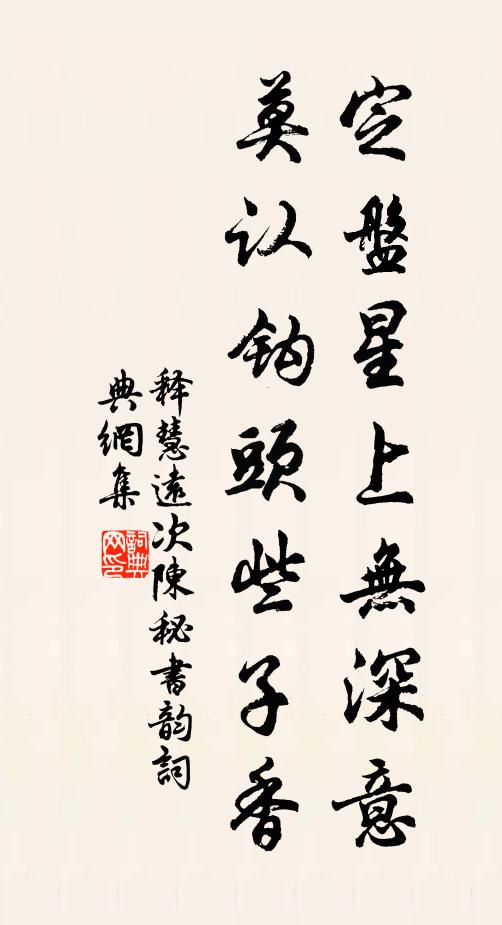 定盤星上無深意
莫认鈎頭些子香
释慧遠次陳秘書韵詞
典網集
詞典
网印